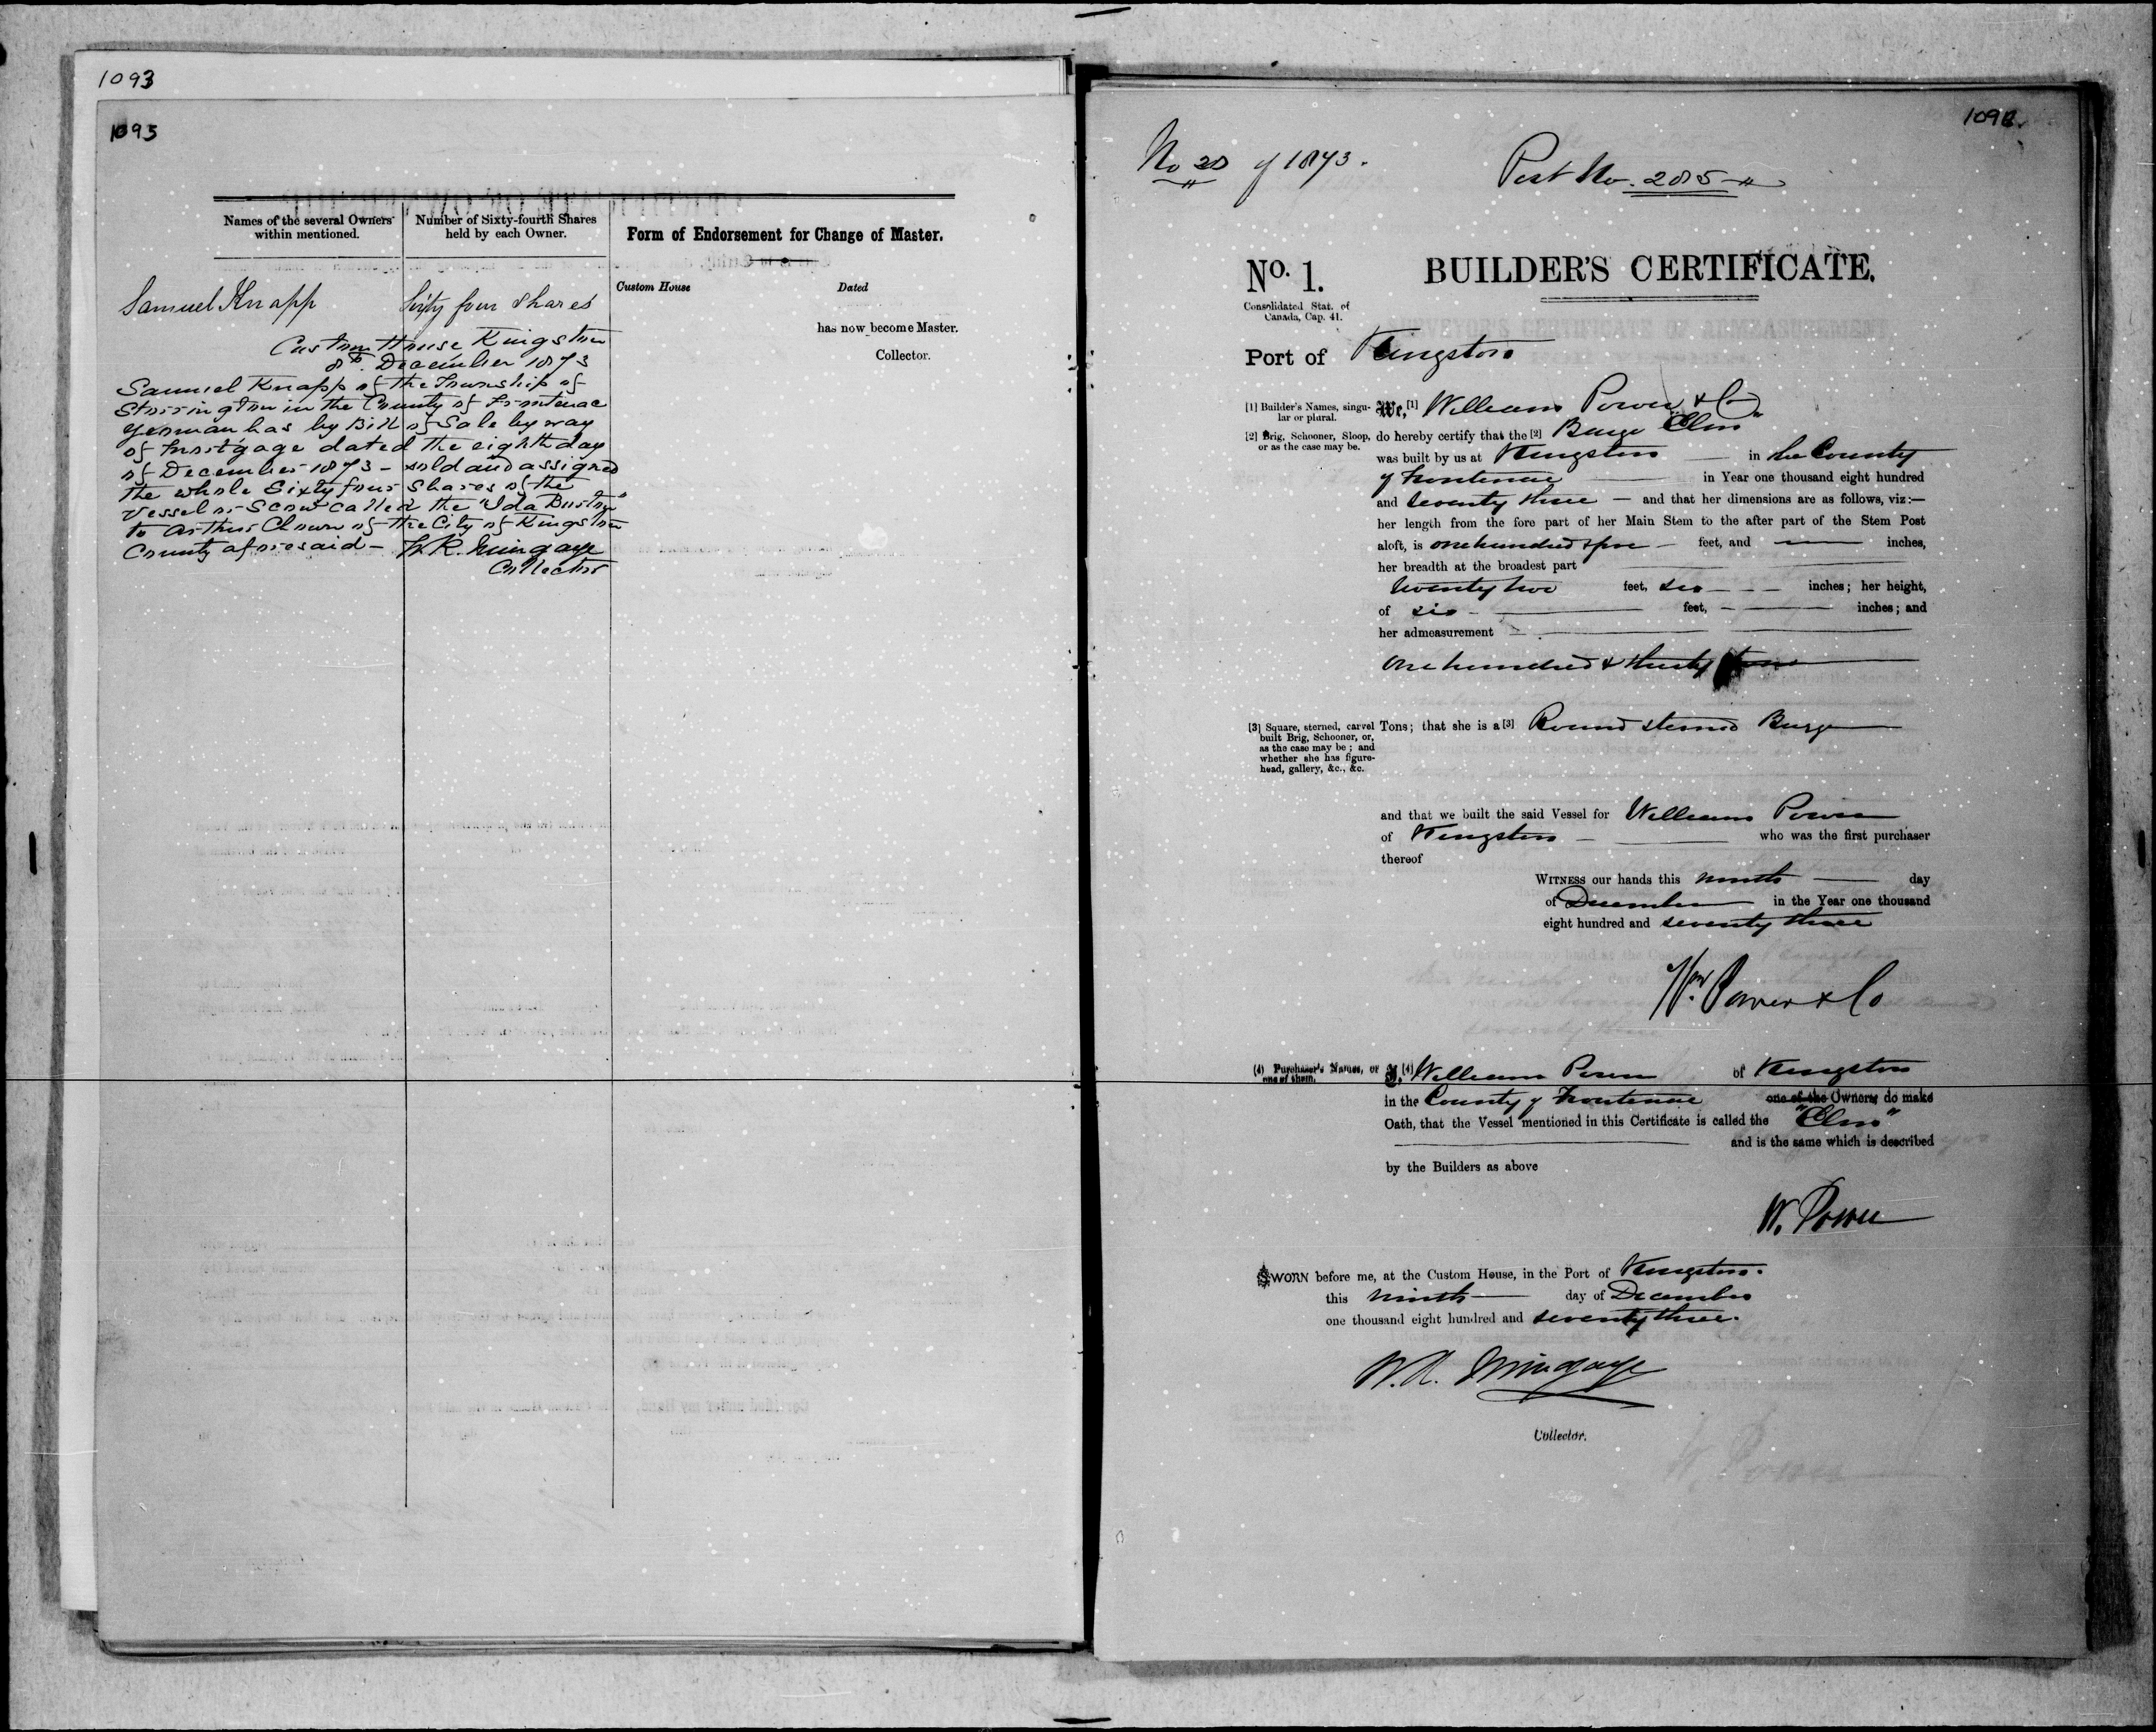 1093
1093
Names of the several Owners within mentioned.
Number of Sixty-fourth Shares held by each Owner.
Form of Endorsement for Change of Master.
Custom House
Dated
has now become Master.
Collector.
Samuel Knapp
Sixty four Shares
Custom House Kingston
8th. December 1873
Samuel Knapp of the Township of
Storrington in the County of Frontenac
Yeoman has by Bill of Sale by way
of mortgage dated the eighth day
of December 1873 - sold and assigned
the whole Sixty four Shares of the
Vessel or Scow called the "Ida
to Arthur Chown of the City of Kingston
County aforesaid - W. R. Mingaye
Collector
No 20 of 1873.
Port No. 285
No. 1.
BUILDER'S CERTIFICATE.
Consolidated Stat. of
Canada, Cap. 41.
Port of Kingston
[1] Builder's Names, singu-
lar or plural.
We, [1] William Power & Co
[2] Brig, Schooner, Sloop,
or as the case may be.
do hereby certify that the [2] Barge "Elm"
was built by us at Kingston in the County
of Frontenac in Year one thousand eight hundred
and seventy three — and that her dimensions are as follows, viz:—
her length from the fore part of her Main Stem to the after part of the Stem Post
aloft, is one hundred & five feet, and — inches,
her breadth at the broadest part
twenty two feet, six inches; her height,
of six feet, — inches; and
her admeasurement
one hundred & thirty
[3] Square, sterned, carvel
built Brig, Schooner, or,
as the case may be; and
whether she has figure-
head, gallery, &c., &c.
Tons; that she is a [3] Round sterned Barge
and that we built the said Vessel for William Power
of Kingston who was the first purchaser
thereof
WITNESS our hands this ninth day
of December in the Year one thousand
eight hundred and seventy three
Wm. Power & Co
(4) Purchaser's Names, or
one of them.
I, [4] William Power of Kingston
in the County of Frontenac one of the Owners do make
Oath, that the Vessel mentioned in this Certificate is called the "Elm"
and is the same which is described
by the Builders as above
W. Power
SWORN before me, at the Custom House, in the Port of Kingston.
this ninth day of December
one thousand eight hundred and seventy three.
W. R. Mingaye
Collector.